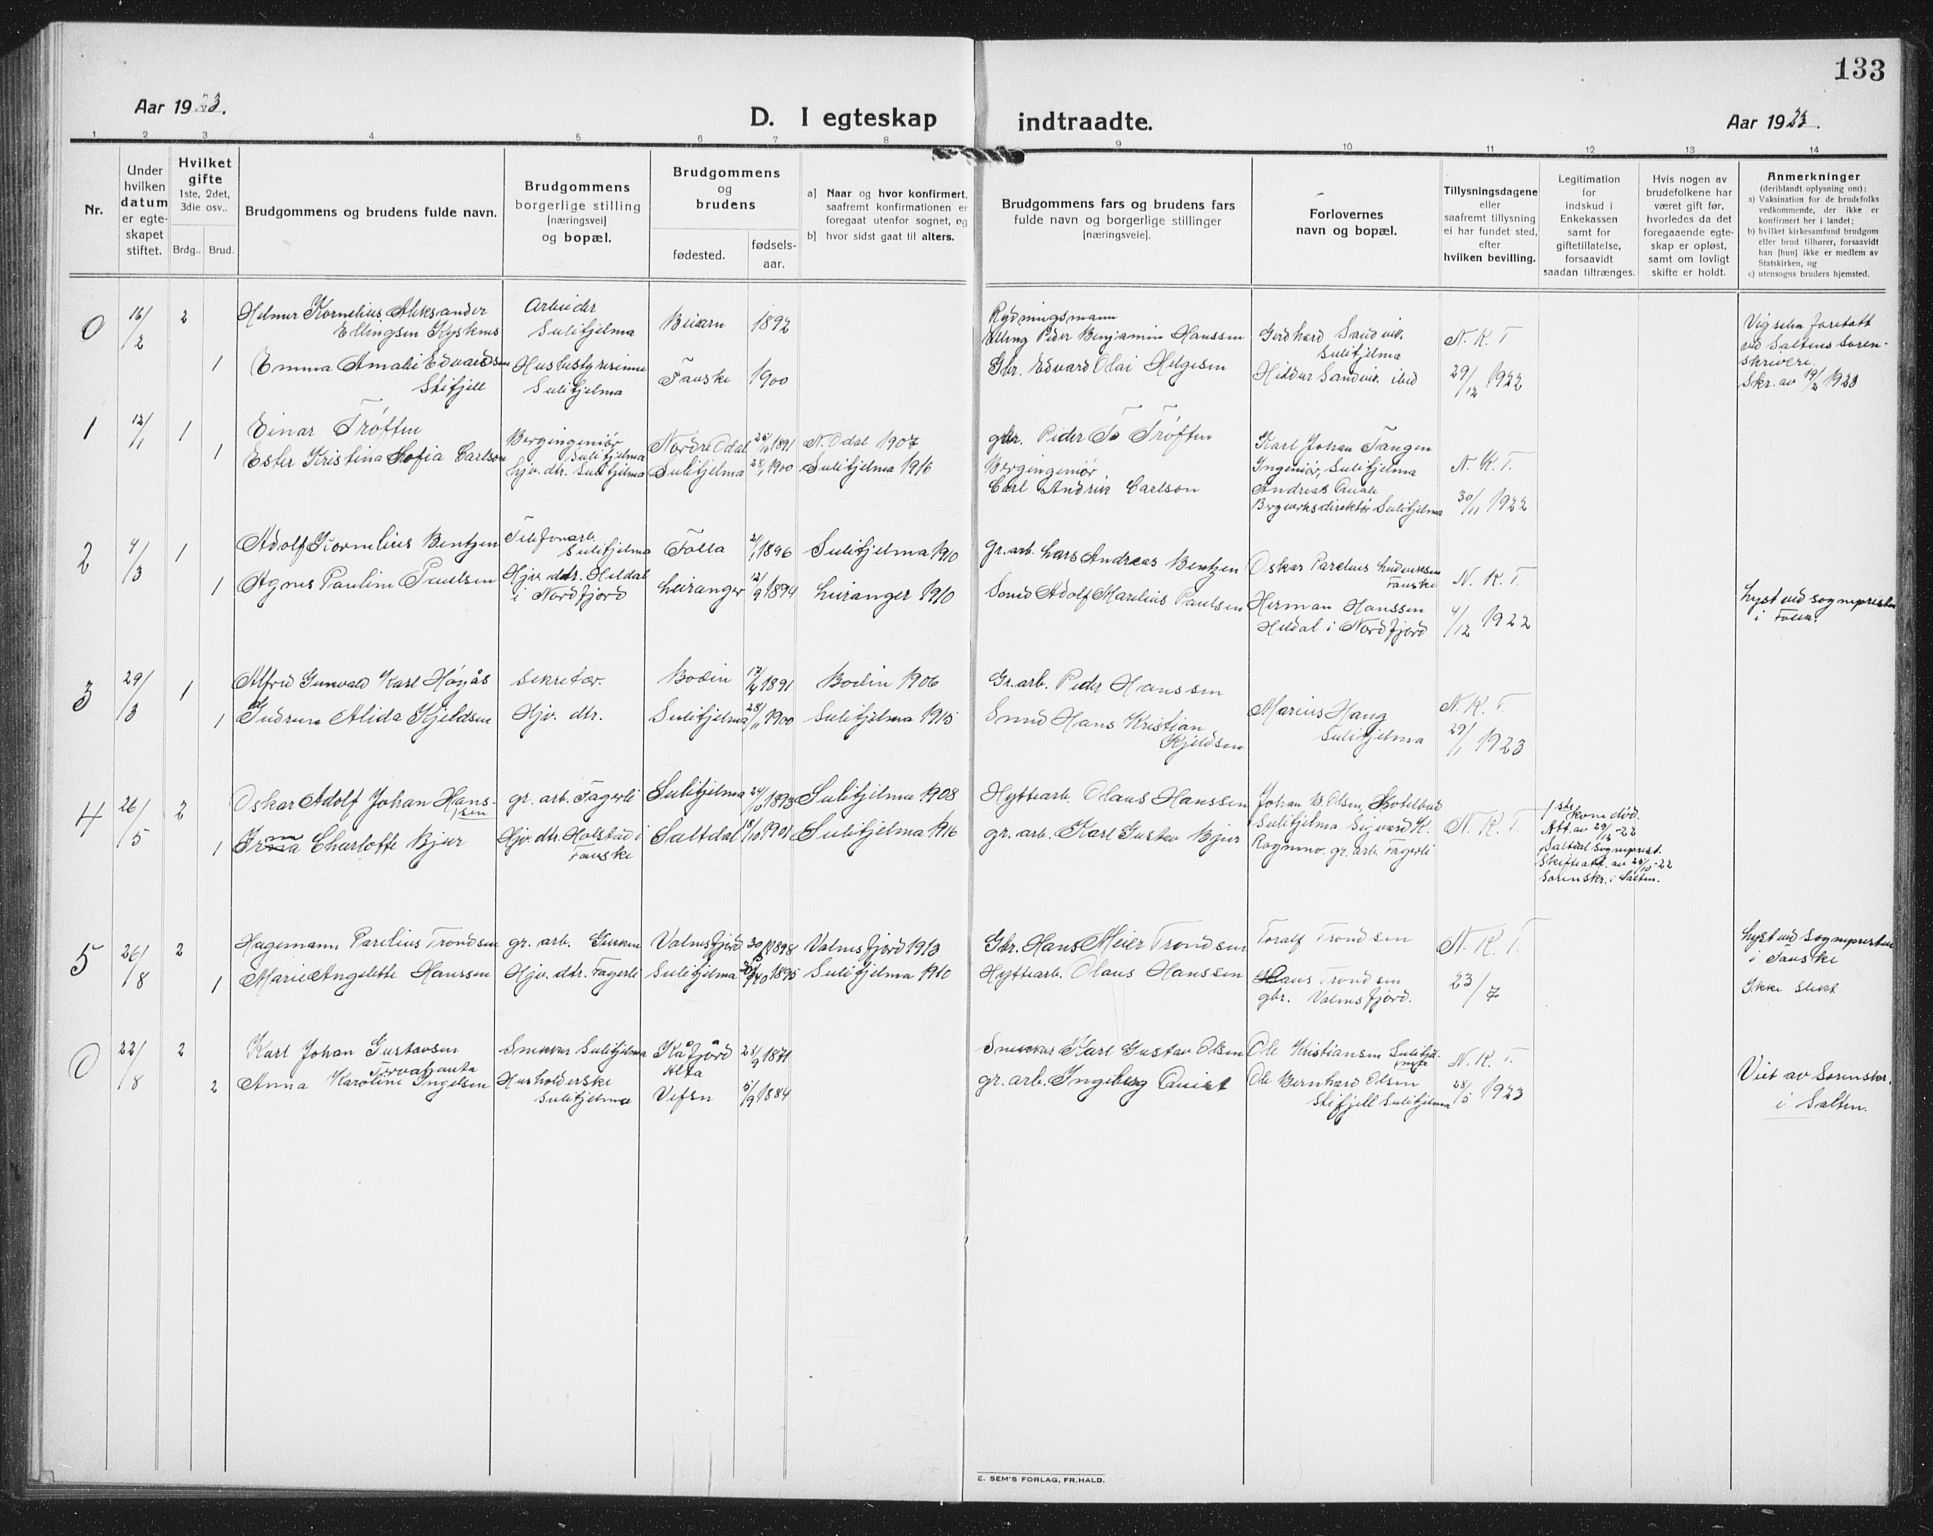 133
Aar 1923.
D. I egteskap indtraadte.
Aar 1923.
1 2 3 4 5 6 7 8 9 10 11 12 13 14
Nr.
Under
hvilken
datum
er egte-
skapet
stiftet.
Hvilket
gifte
1ste, 2det,
3die osv..
Brdg.. Brud.
Brudgommens og brudens fulde navn.
Brudgommens
borgerlige stilling
[næringsvei]
og bopæl.
Brudgommens
og
brudens
fødested.
fødsels-
aar.
a] Naar og hvor konfirmert,
saafremt konfirmationen er
foregaat utenfor sognet, og
b] hvor sidst gaat til alters.
Brudgommens fars og brudens fars
fulde navn og borgerlige stillinger
[næringsveie].
Forlovernes
navn og bopæl.
Tillysningsdagene
eller
saafremt tillysning
ei har fundet sted,
efter
hvilken bevilling.
Legitimation
for
indskud i
Enkekassen
samt for
giftetillatelse,
forsaavidt
saadan tiltrænges.
Hvis nogen av
brudefolkene har
været gift før,
hvorledes da det
foregaaende egte-
skap er opløst,
samt om lovligt
skifte er holdt.
Anmerkninger
(deriblandt oplysning om):
a) Vaksination for de brudefolks
vedkommende, der ikke er
konfirmert her i landet;
b) hvilket kirkesamfund brudgom
eller brud tilhører, forsaavidt
han [hun] ikke er medlem av
Statskirken, og
c) utensogns bruders hjemsted.
0 16/2 2 Helmer Kornelius Aleksander
Ellingsen Kysknes
Arbeider
Sulitjelma
Beiarn 1892
Rydningsmann
Elling Peder Benjamin Hanssen
Gerhard Sandvik
Sulitjelma
N. K. T
Vigselen foretatt
ved Saltens Soren-
skriveri
Skr. av 19/2 1923
1 Emma Amalie Edvardsen
Stifjell
Husbestyrerinne
Sulitjelma
Fauske 1900
Gbr. Edvard Olai Helgesen
Hildur Sandvik ibid
29/12 1922
1 12/1 1 Einar Trøften
Bergingeniør
Sulitjelma
Nordre Odal 26/11 1891 N. Odal 1907
gbr. Peder To Trøften
Karl Johan Tangen
Ingeniør, Sulitjelma
N. K. T.
1 Ester Kristina Sofia Carlson
hjv. dtr. Sulitjelma
Sulitjelma 28/1 1900 Sulitjelma 1916
Bergingeniør
Carl Andrik Carlson
Andreas Quale
Bergverksdirektør Sulitjelma
30/11 1922
2 4/3 1 Adolf Kornelius Bentzen
Telefonarb.
Sulitjelma
Folla 2/1 1896 Sulitjelma 1910
gr. arb. Lars Andreas Bentzen
Oskar Parelius Ludvigsen
Fauske
N. K. T
1 Agnes Pauline Paulsen
Hjv. dtr. Heldal
i Nordfjord
Leiranger 12/9 1894 Leiranger 1910
Smed Adolf Marelius Paulsen
Herman Hanssen
Heldal i Nordfjord
4/12 1922
Lyst ved sognepresten
i Folla.
3 29/3 1 Alfred Gunvald Karl Høgås
Sekretær.
Bodin 17/4 1891 Bodin 1906
Gr. arb. Peder Hanssen
N. K. T
1 Gudrun Alida Kjeldsen
Hjv. dtr.
Sulitjelma 28/11 1900 Sulitjelma 1915
Smed Hans Kristian
Kjeldsen
Marius Haug
Sulitjelma
29/1 1923
4 26/5 2 Oskar Adolf Johan Hans-
sen
gr. arb. Fagerli
Sulitjelma 24/10 1893 Sulitjelma 1908
Hyttearb. Olaus Hanssen
Johan B. Olsen, Hotelbud
Sulitjelma Sigvard K.
Ragnmo. gr. arb. Fagerli
N. K. T.
1ste kone død.
Att. av 29/12-22
Saltdal Sogneprest.
Skifteatt. av 28/10-22
Sorenskr. i Salten.
1 Irma Charlotte Bjur
Hjv. dtr Holstad i
Fauske
Saltdal 18/10 1901 Sulitjelma 1916
gr. arb. Karl Gustav Bjur
5 26/8 2 Hagemann Parelius Trondsen
gr. arb. Furum
Valnesfjord 30 1898 Valnesfjord 1913
Gbr. Hans Meier Trondsen
Toralf Trondsen
N. K. T.
Lyst ved Sognepresten
i Fauske
1 Marie Angelette Hanssen
Hjv. dtr. Fagerli
Sulitjelma 1895 Sulitjelma 1910
Hyttearb. Olaus Hanssen
Hans Trondsen
gbr. Valnesfjord.
23/7
Ikke slekt
0 22/8 2 Karl Johan Gustavsen
Torvahauta
Snekker Sulitjelma
Kåfjord
Alta
28/9 1871
Snekker Karl Gustav Olsen
Ole Kristiansen Sulitjel-
N. K. T.
2 Anna Karoline Ingelsen
Husholderske
Sulitjelma
Vefsn 5/9 1884
gr. arb. Ingeberg Qvist
Ole Bernhard Olsen
Stifjell Sulitjelma
28/5 1923
Viet av Sorenskr.
i Salten.
E. SEM'S FORLAG, FR.HALD.